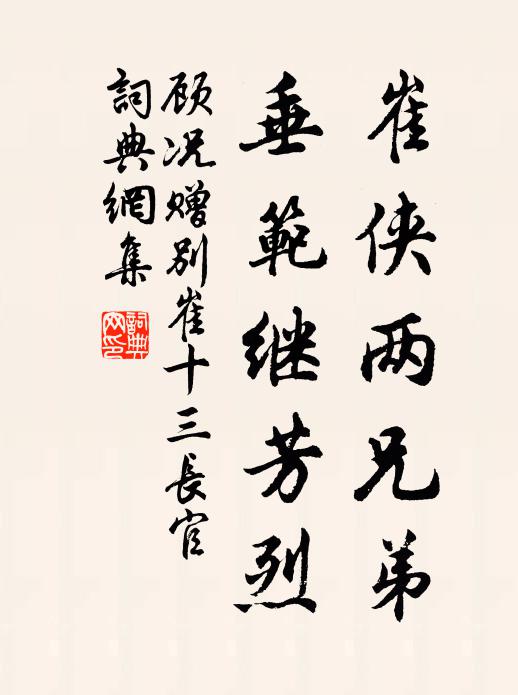 崔侠两兄弟
垂範继芳烈
顾况赠别崔十三長官
詞典網集
詞典网印